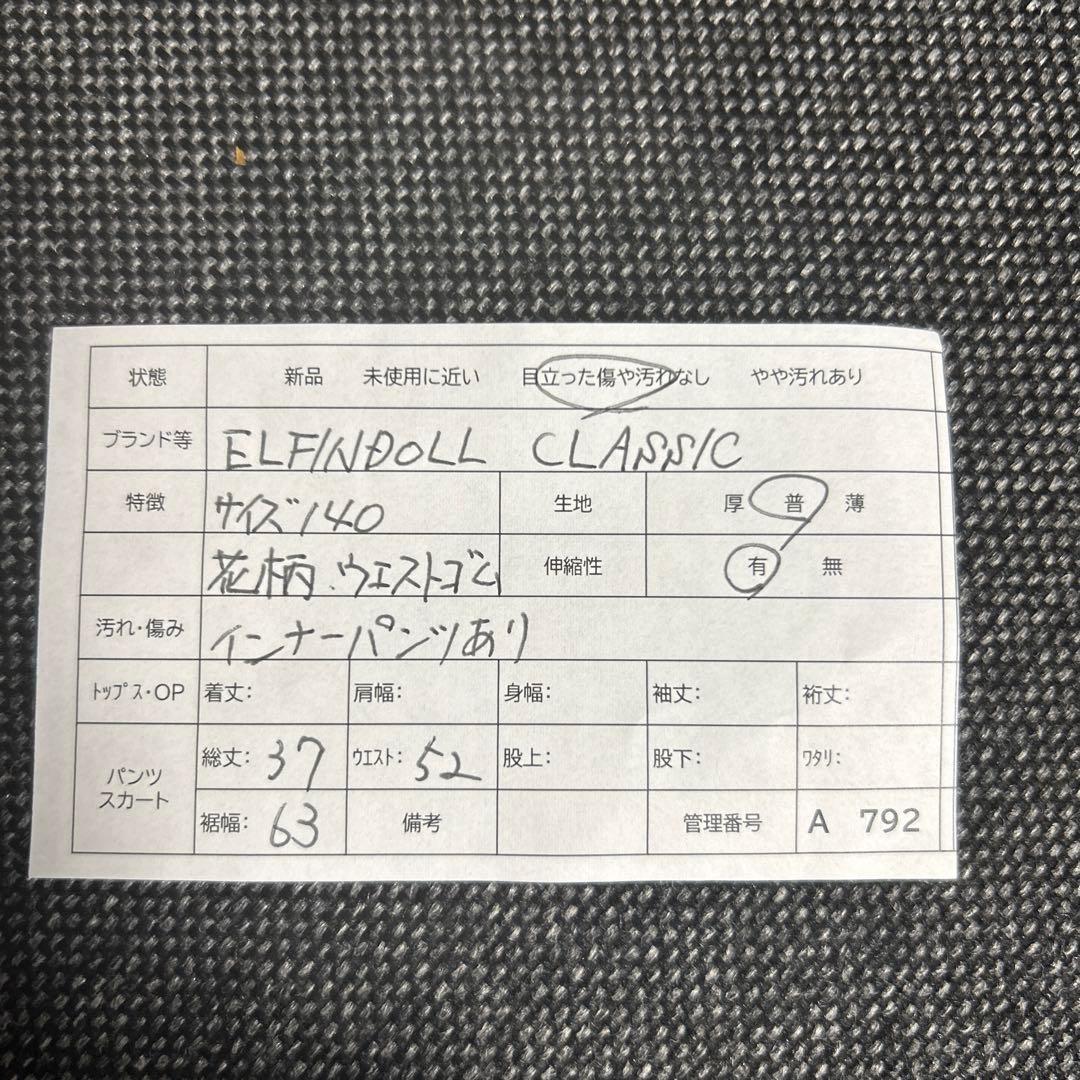 状態 新品 未使用に近い 目立った傷や汚れなし やや汚れあり
ブランド等 ELFINDOLL CLASSIC
特徴 サイズ140 生地 厚 普 薄
花柄.ウエストゴム 伸縮性 有 無
汚れ・傷み インナーパンツあり
ﾄｯﾌﾟｽ・OP 着丈: 肩幅: 身幅: 袖丈: 裄丈:
パンツ スカート 総丈: 37 ｳｴｽﾄ: 52 股上: 股下: ﾜﾀﾘ:
裾幅: 63 備考 管理番号 A 792